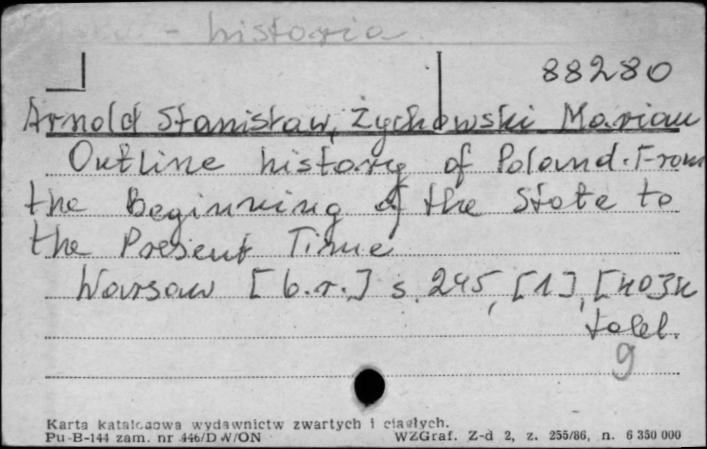 - historia
88280
Arnold Stanisław, Żychowski Marian
Outline history of Poland. From
the Beginning of the State to
the Present Time
Warsaw [b.r.] s. 245, [1], [40] k
tabl.
9
Karta katalogowa wydawnictw zwartych i ciągłych.
Pu-B-144 zam. nr 446/D W/ON WZGraf. Z-d 2, z. 255/86, n. 6 350 000